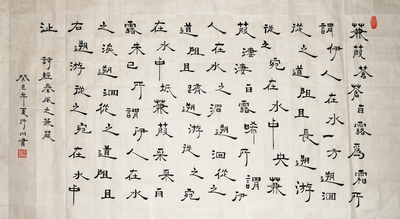 蒹葭蒼蒼白露爲霜所
謂伊人在水一方遡洄
從之道阻且長遡游
從之宛在水中央蒹
葭淒淒白露未晞所謂
伊人在水之湄遡洄從之
道阻且躋遡游從之宛
在水中坻蒹葭采采白
露未已所謂伊人在水
之涘遡洄從之道阻且
右遡游從之宛在水中
沚 詩經秦風之蒹葭
癸巳年夏行川書